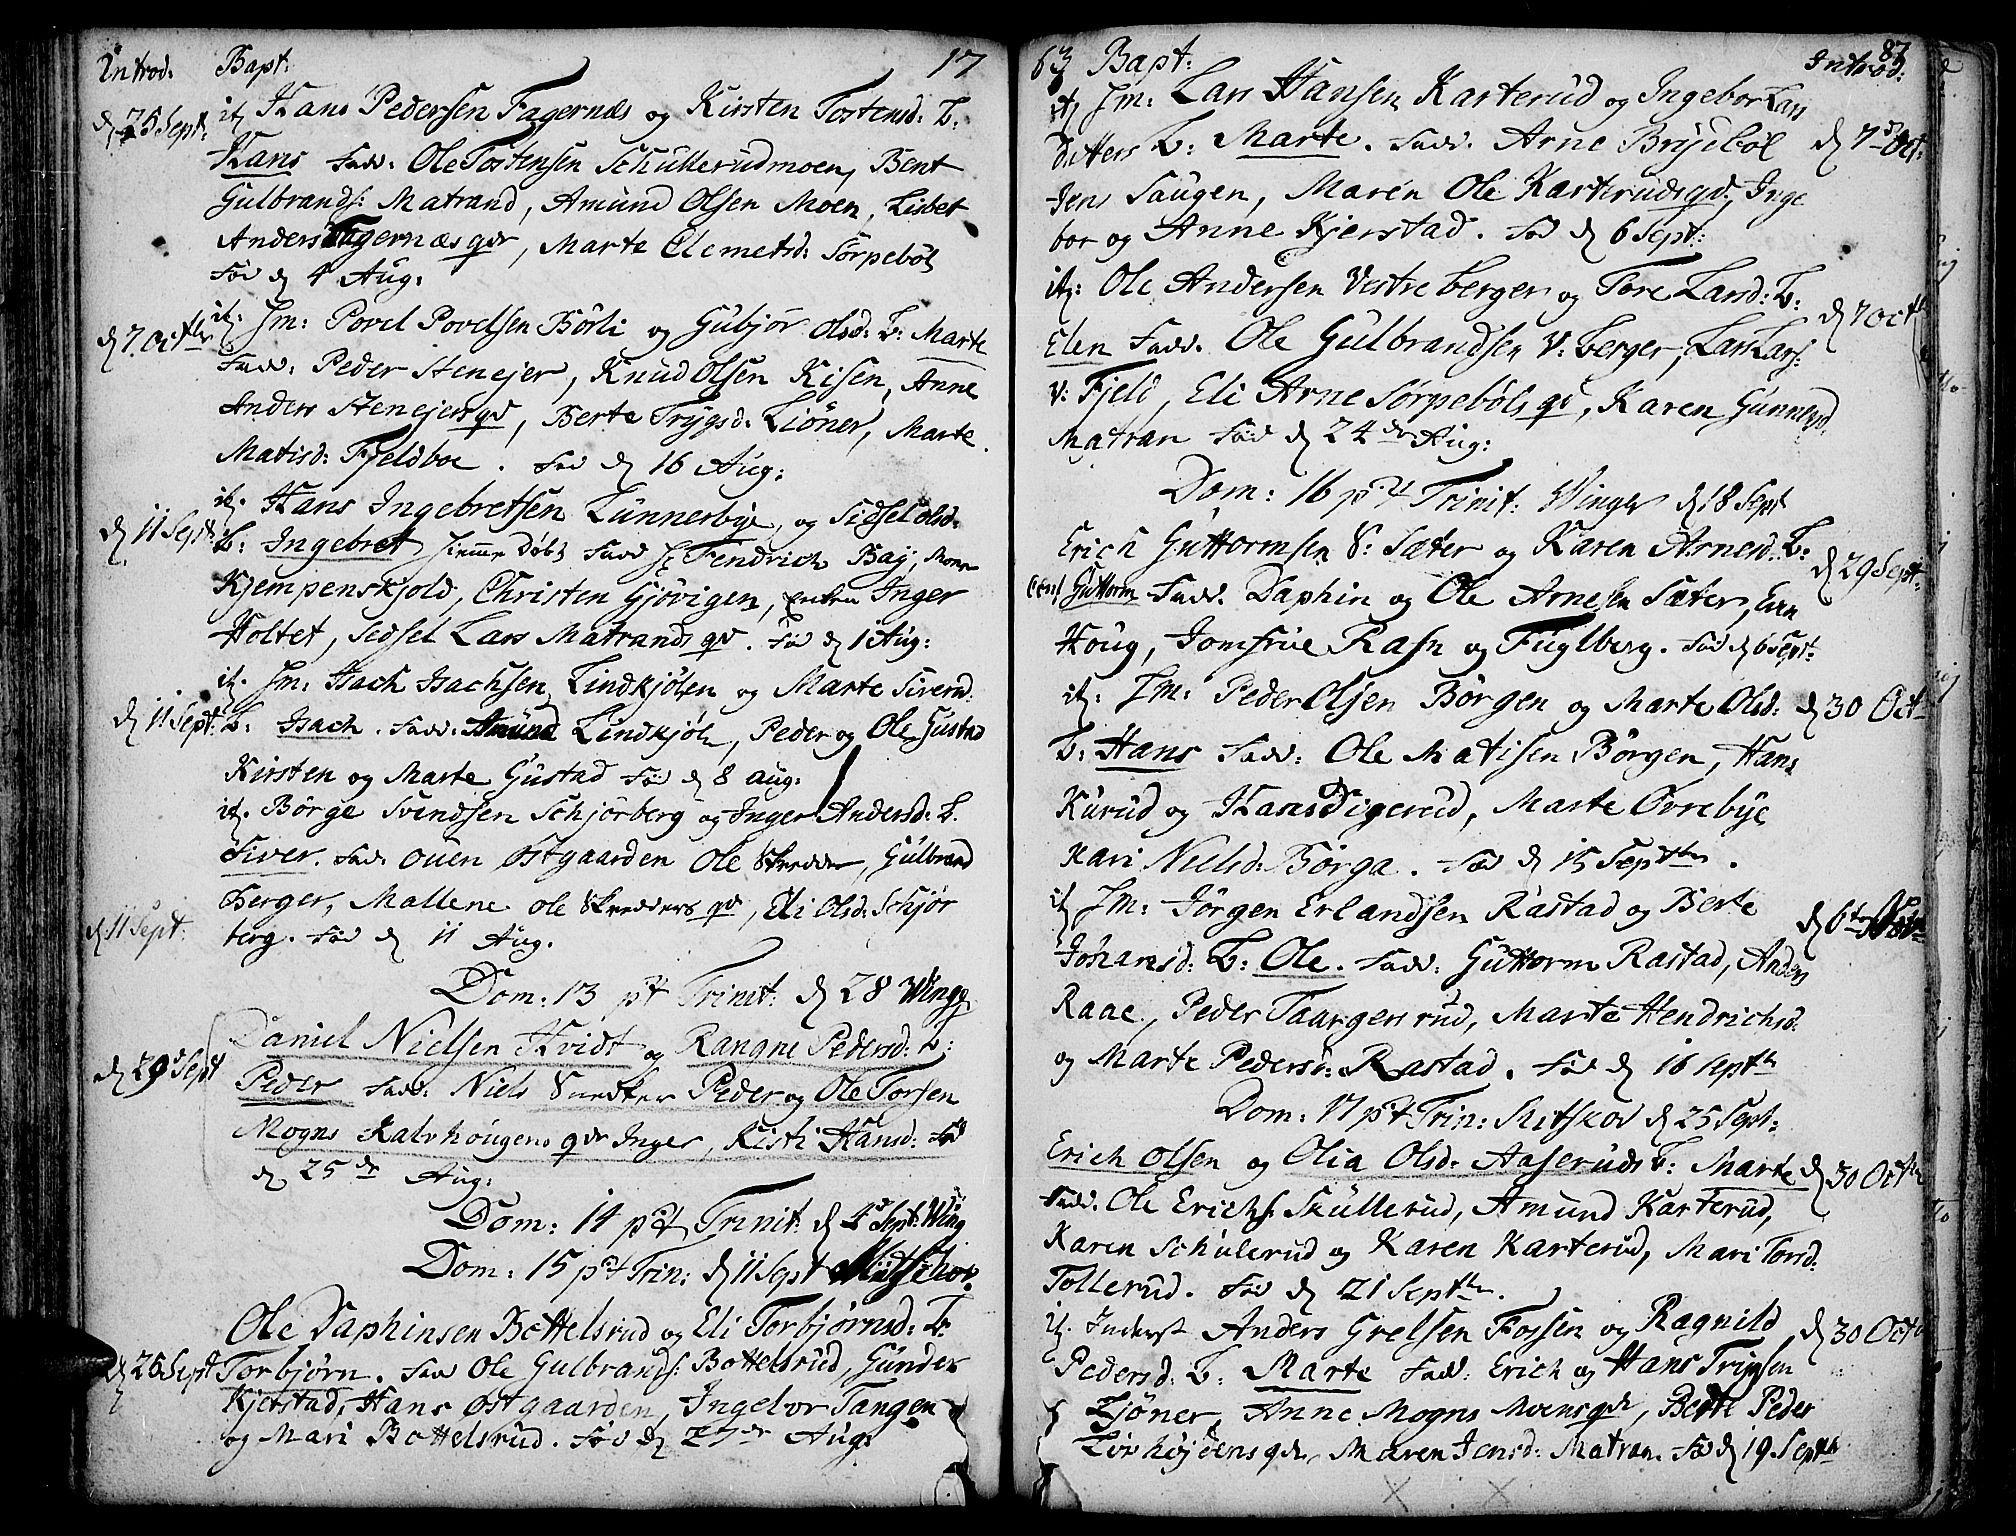 Introd. Bapt: 17
d 25 Sept: it Hans Pedersen Fagernæs og Kirsten Tostensd: B:
Hans Fadd: Ole Tostensen Schullerudmoen, Bent
Gulbrands: Matrand, Amund Olsen Moen, Lisbet
Anders Fagernæs qdr, Marte Clemetsd: Sørpebøl
Fød d 4 Aug:
d 7 Octbr it. Jm: Povel Povelsen Børli og Gubjør Olsd: B: Marte
Fadd: Peder Stenejer, Knud Olsen Kisen, Anne
Anders Stenejers qd, Berte Trygsd: Liöner, Marte
Matisd: Fjeldboe. Fød d 16 Aug:
d 11 Sept it. Hans Ingebretsen Lunnerbye, og Sidsel Olsd:
B: Ingebret hjemme Döbt Fadd Fendrich Baÿ, Mons
Kjempenskjold, Christen Gjövigen, Inger
Holtet, Sedsel Lars Matrands qd. Fød d 1 Aug:
it. Jm: Isach Isachsen Lindkjølen og Marte Siversd.
d 11 Sept: B: Isach. Fadd: Amund Lindkjøln, Peder og Ole Gustad
Kirsten og Marte Gustad Fød d 8 aug:
it. Börge Svendsen Schjörberg og Inger Andersd: B.
Siver. Fadd: Ouen Østgaarden Ole Skredder, Gulbrand
Berger, Mallene Ole Skredders qd, Eli Olsd: Schjör
d 11 Sept: berg. Fød d 11 Aug.
Dom: 13 pt Trinit: d 28 Wing
Daniel Nielsen Hvidt og Rangne Pedersd: B:
d 29 Sept Peder Fadd: Niels Snedker Peder og Ole Torsen
Mogns Kalvhougens qdr Inger, Kisti Hansd: Fød
d 25 de Aug:
Dom: 14 pt Trinit: d 4 Sept: Wing
Dom: 15 pt Trin: d 11 Sept
Ole Daphinsen Bottelsrud og Eli Torbjørnsd: B:
d 26 Sept Torbjørn. Fad Ole Gulbrands: Bottelsrud, Gunder
Kjerstad, Hans Østgaarden, Ingebor Tangen
og Mari Bottelsrud. Fød d 27 de Aug:
63 Bapt: Introd: 87
it Jm: Lars Hansen Karterud og Ingebor Lars
Datters B: Marte. Fadd. Arne Bryebøl d 7 Oct:
Jens Saugen, Maren Ole Karteruds qd, Inge
bor og Anne Kjerstad. Fød d 6 Sept:
it: Ole Andersen Vestre berger og Tore Larsd: B: d 7 Oct
Elen Fadd. Ole Gulbrandsen V: berger, Lars Lars:
V: Fjeld, Eli Arne Sørpebøls qd, Karen Gunnersd
Matran Fød d 24 de Aug:
Dom: 16 pt Trinit: Winger d 18 Sept
Erich Guttormsen S: Sæter og Karen Arnesd: B: d 29 Sept:
Guttorm Fadd. Daphin og Ole Arnesen Sæter, Even
Houg, Jomfrue Rasn og Fuglberg. Fød d 6 Sept:
it: Jm: Peder Olsen Börgen og Marte Olsd: d 30 Oct
B: Hans Fadd: Ole Matisen Börgen, Hans
Kurud og Hans Digerud, Marte Övrebye
Kari Nielsd: Börga. Fød d 15 Septbr.
it Jm: Jörgen Erlandsen Rastad og Berte d 6te
Johansd: B: Ole. Fadd: Guttorm Rastad, Anders
Raae, Peder Taargersrud, Marte Hendrichsd:
og Marte Pedersd: Rastad. Fød d 16 Septbr
Dom: 17 pt Trin: Mitskov d 25 Sept:
Erich Olsen og Olia Olsd: Aaseruds B: Marte d 30 Octbr
Fadd. Ole Erichs: Skullerud, Amund Karterud,
Karen Schulerud og Karen Karterud, Mari Torsd:
Tollerud. Fød d 21 Septbr.
it. Inderst Anders Grelsen Fossen og Ragnild d 30 Octb
Pedersd: B: Marte Fadd: Erich og Hans Trygsen
Liöner, Anne Mogns Moens qdr, Berte Peder
Lövhöjdens qdr, Maren Jensd: Matran. Fød d 19 Septbr